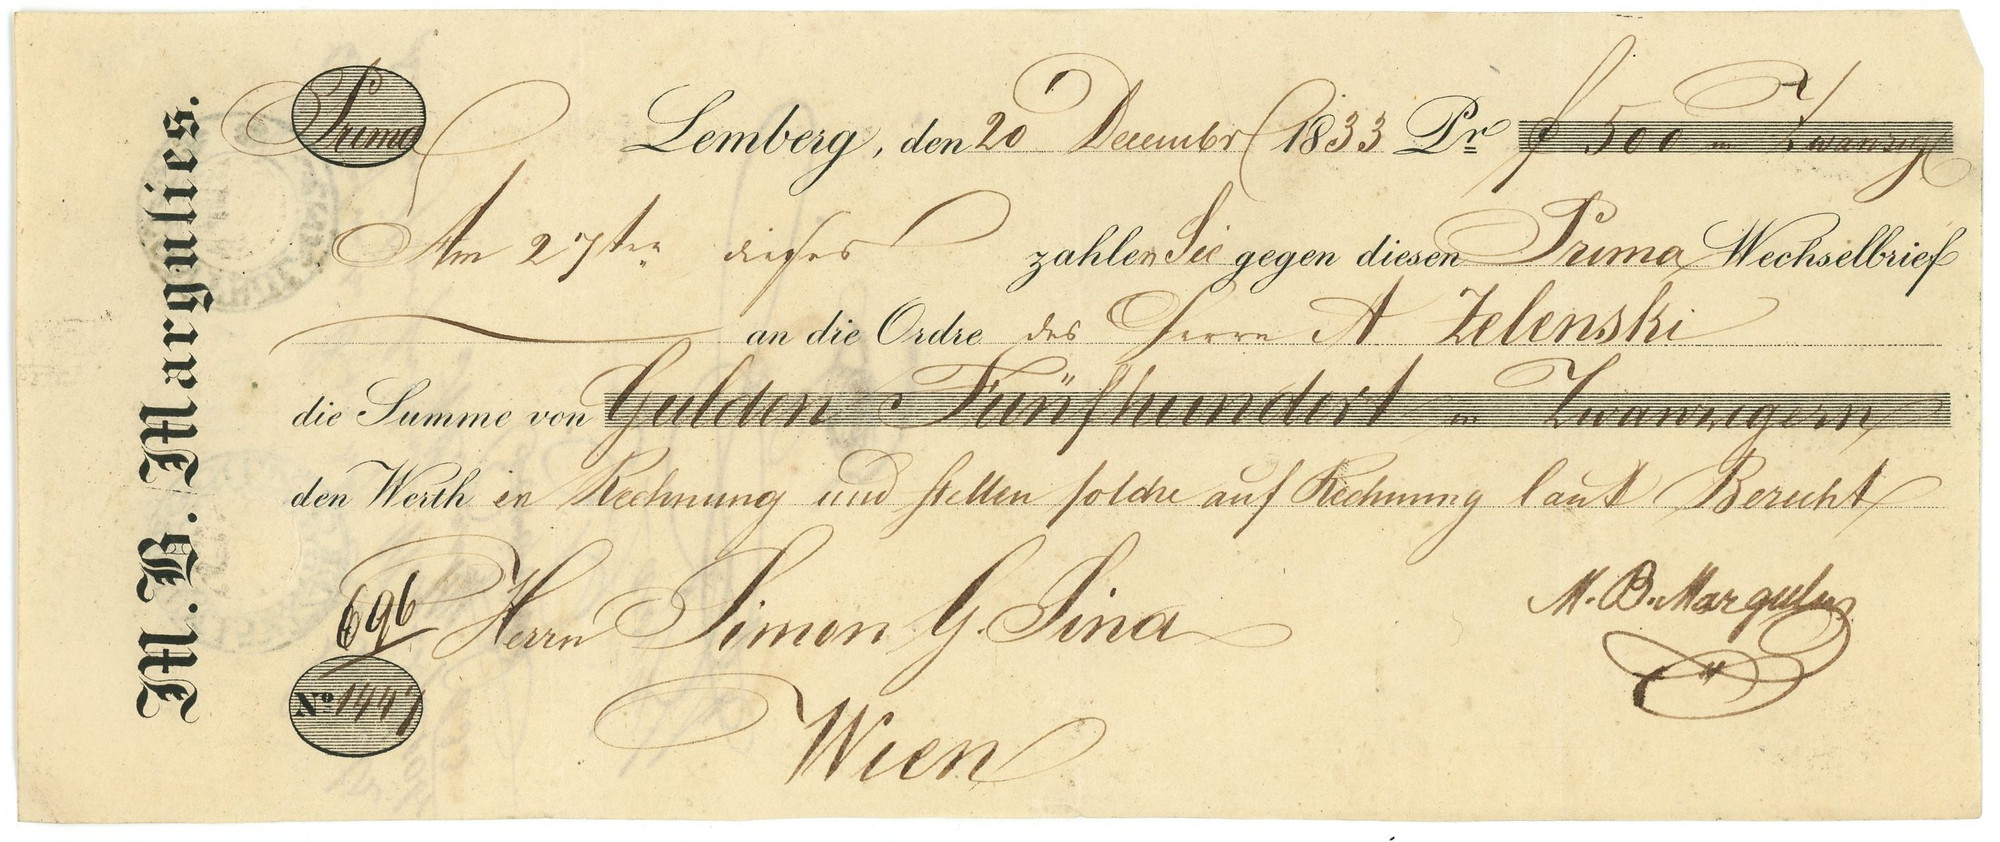 M. B. Margulies.
Prima
Lemberg, den 20 Decembr 1833 Pr f 500 in Zwanzig
Am 27ten dieses zahlen Sie gegen diesen Prima Wechselbrief
an die Ordre des Herrn A Zelenski
die Summe von Gulden Fünfhundert in Zwanzigern
den Werth in Rechnung und stellen solche auf Rechnung laut Bericht
M. B. Margulies
696 Herrn Simon G. Sina
No 1447
Wien